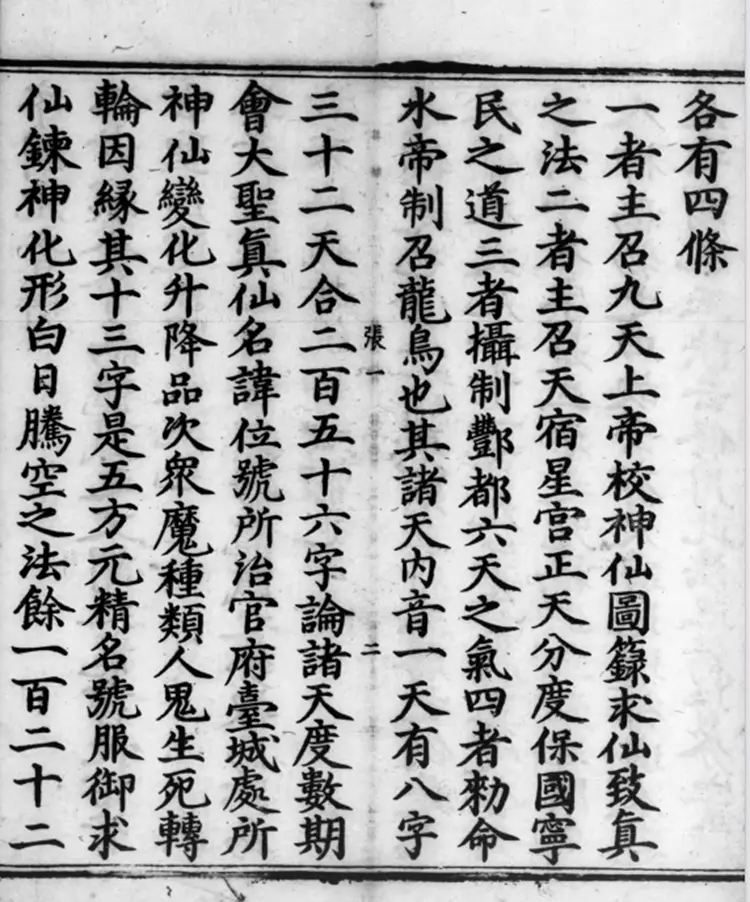 各有四條
一者主召九天上帝校神仙圖籙求仙致眞
之法二者主召天宿星宫正天分度保國寧
民之道三者攝制酆都六天之氣四者勑命
水帝制召龍鳥也其諸天内音一天有八字
張一
二
三十二天合二百五十六字論諸天度數期
會大聖眞仙名諱位號所治官府臺城處所
神仙變化升降品次衆魔種類人鬼生死轉
輪因縁其十三字是五方元精名號服御求
仙鍊神化形白日騰空之法餘一百二十二